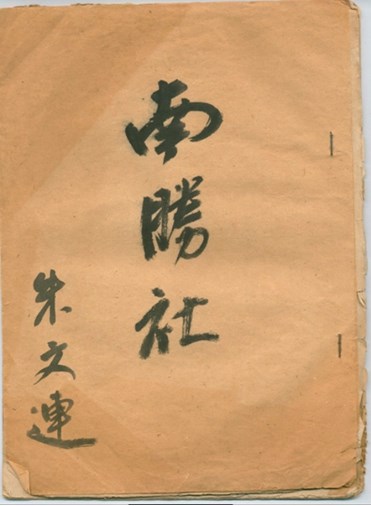 南勝社
朱文連